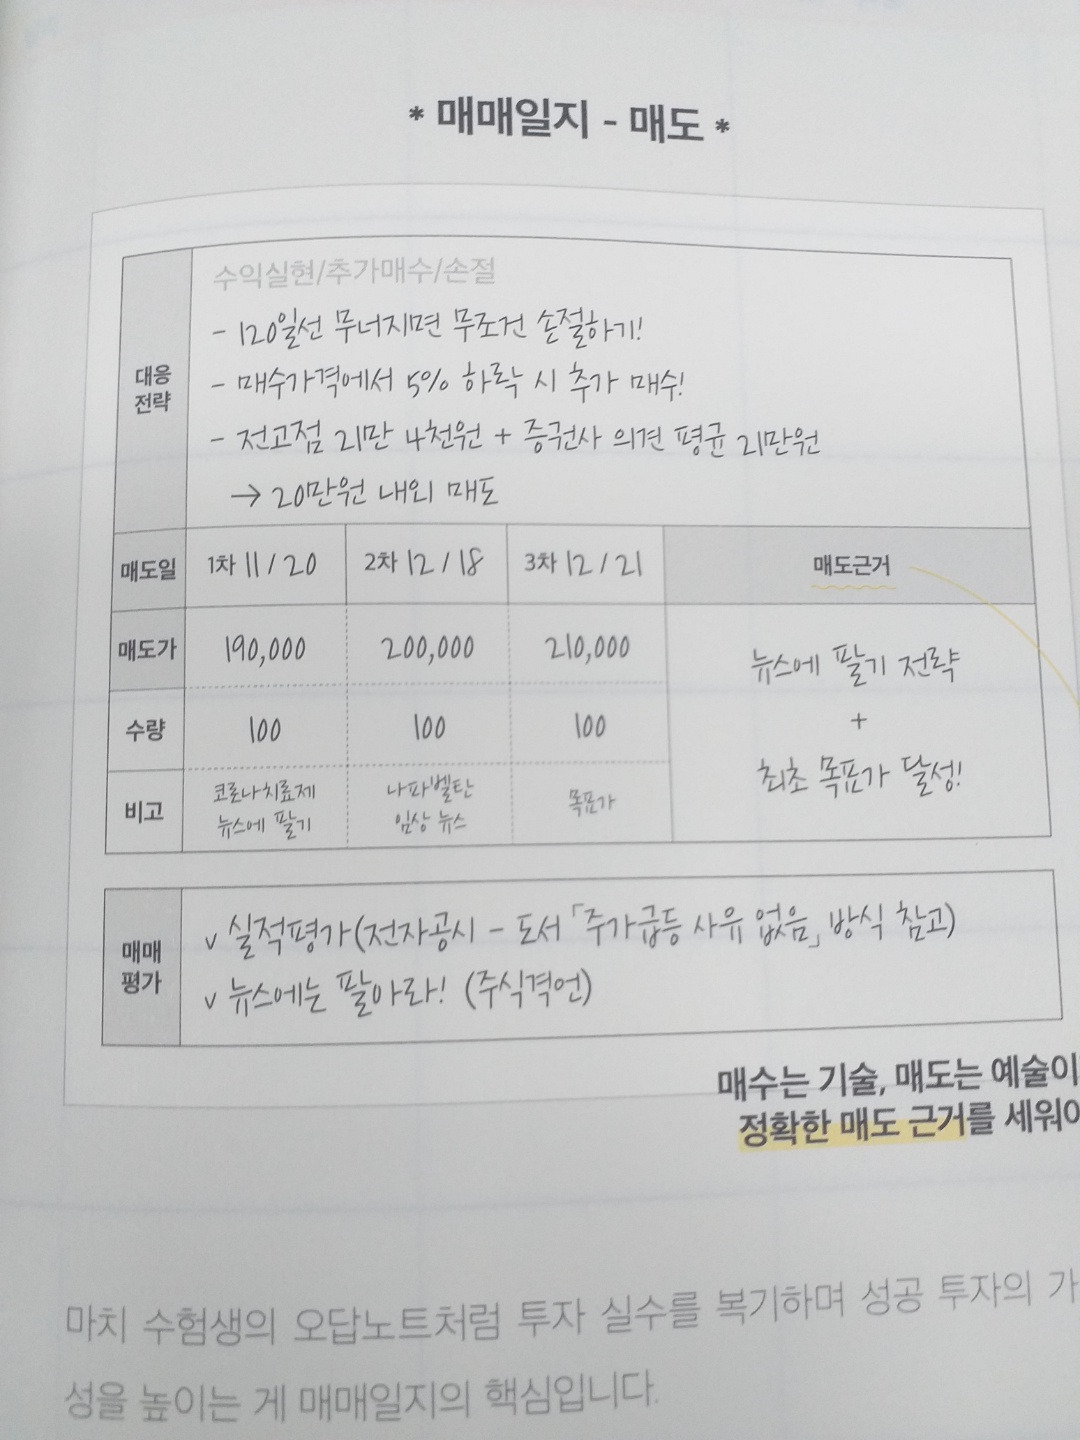 * 매매일지 - 매도 *
수익실현/추가매수/손절
대응
전략
- 120일선 무너지면 무조건 손절하기!
- 매수가격에서 5% 하락 시 추가 매수!
- 전고점 21만 4천원 + 증권사 의견 평균 21만원
→ 20만원 내외 매도
매도일 1차 11/20 2차 12/18 3차 12/21 매도근거
매도가 190,000 200,000 210,000
뉴스에 팔기 전략
+
최초 목표가 달성!
수량 100 100 100
비고
코로나치료제
뉴스에 팔기
나파벨탄
임상 뉴스
목표가
매매
평가
v 실적평가(전자공시 - 도서「주가급등 사유 없음」방식 참고)
v 뉴스에는 팔아라! (주식격언)
매수는 기술, 매도는 예술이
정확한 매도 근거를 세워야
마치 수험생의 오답노트처럼 투자 실수를 복기하며 성공 투자의 가
성을 높이는 게 매매일지의 핵심입니다.